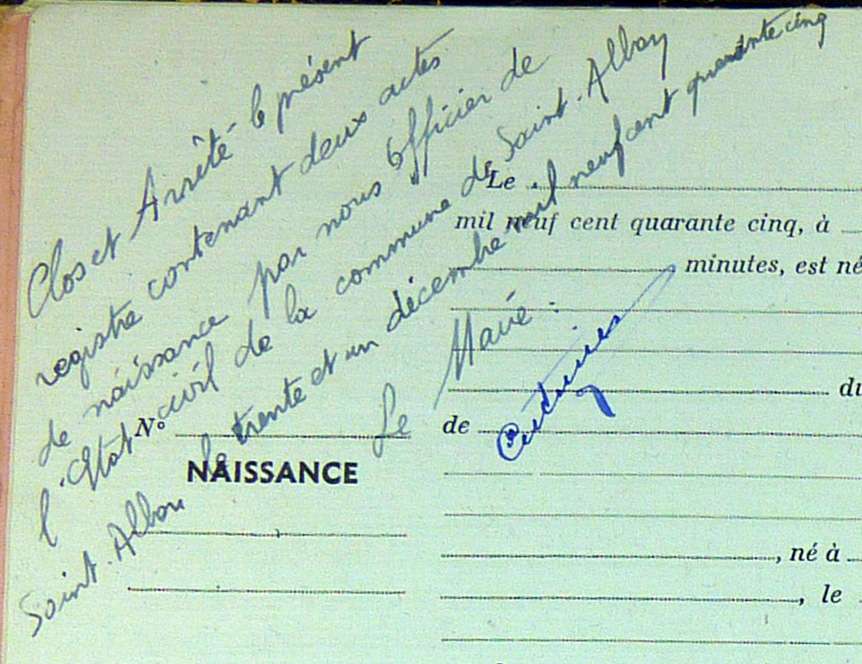 Clos et Arrêté le présent
registre contenant deux actes
de naissance par nous Officier de
l'Etat civil de la commune de Saint-Alban
Saint-Alban le trente et un décembre mil neuf cent quarante cinq
Le Maire :
Le
mil neuf cent quarante cinq, à
minutes, est né
du
No
de
NAISSANCE
, né à
, le